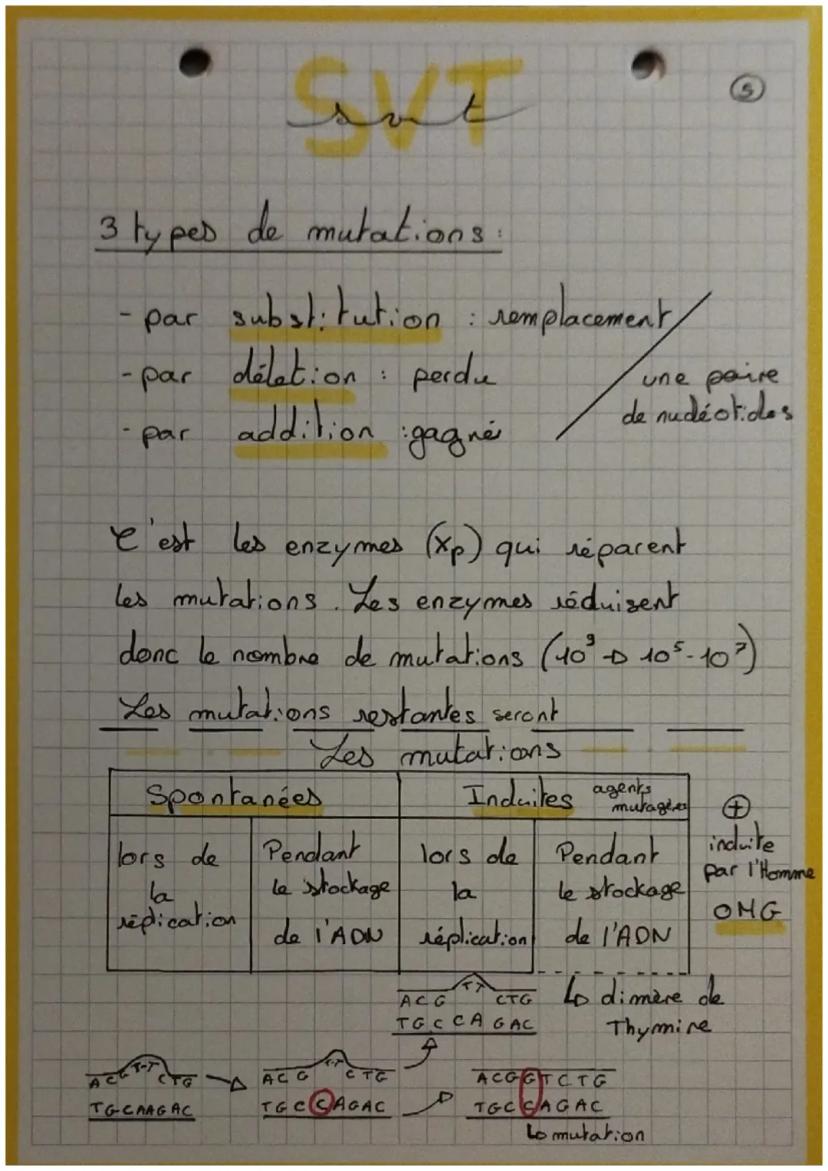 SVT
svt
5
3 types de mutations :
- par substitution : remplacement
- par délétion : perdu
- par addition : gagné
une paire
de nucléotides
C'est les enzymes (xp) qui réparent
les mutations. Les enzymes réduisent
donc le nombre de mutations (10³ → 10⁵-10⁷)
Les mutations restantes seront
Les mutations
Spontanées
Induites agents mutagènes
lors de la réplication
Pendant le stockage de l'ADN
lors de la réplication
Pendant le stockage de l'ADN
+
induite
par l'Homme
OMG
ACG TT CTG
TGCCAGAC
↳ dimère de
Thymine
ACG T-T CTG
TGCAAGAC
ACG T-T CTG
TGCCAGAC
ACGGTCTG
TGCCAGAC
↳ mutation